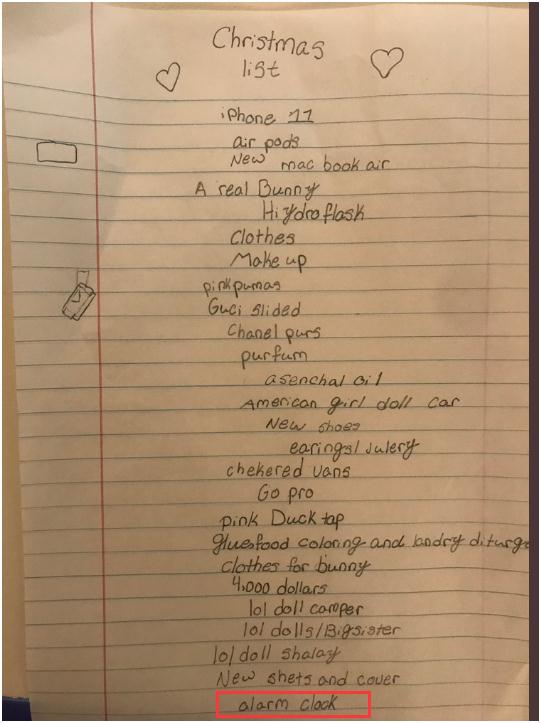 Christmas
list
iPhone 11
air pods
New mac book air
A real Bunny
Hiydroflask
Clothes
Make up
pinkpumas
Guci slided
Chanel purs
purfum
asenchal oil
American girl doll car
New shoes
earings/Julery
chekered vans
Go pro
pink Duck tap
gluesfood coloring and landry diturge
Clothes for bunny
4,000 dollars
lol doll camper
lol dolls/Bigsister
lol doll shalay
New shets and cover
alarm clock